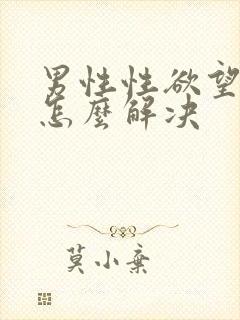 男性性欲望
怎麼解决
莫小棄